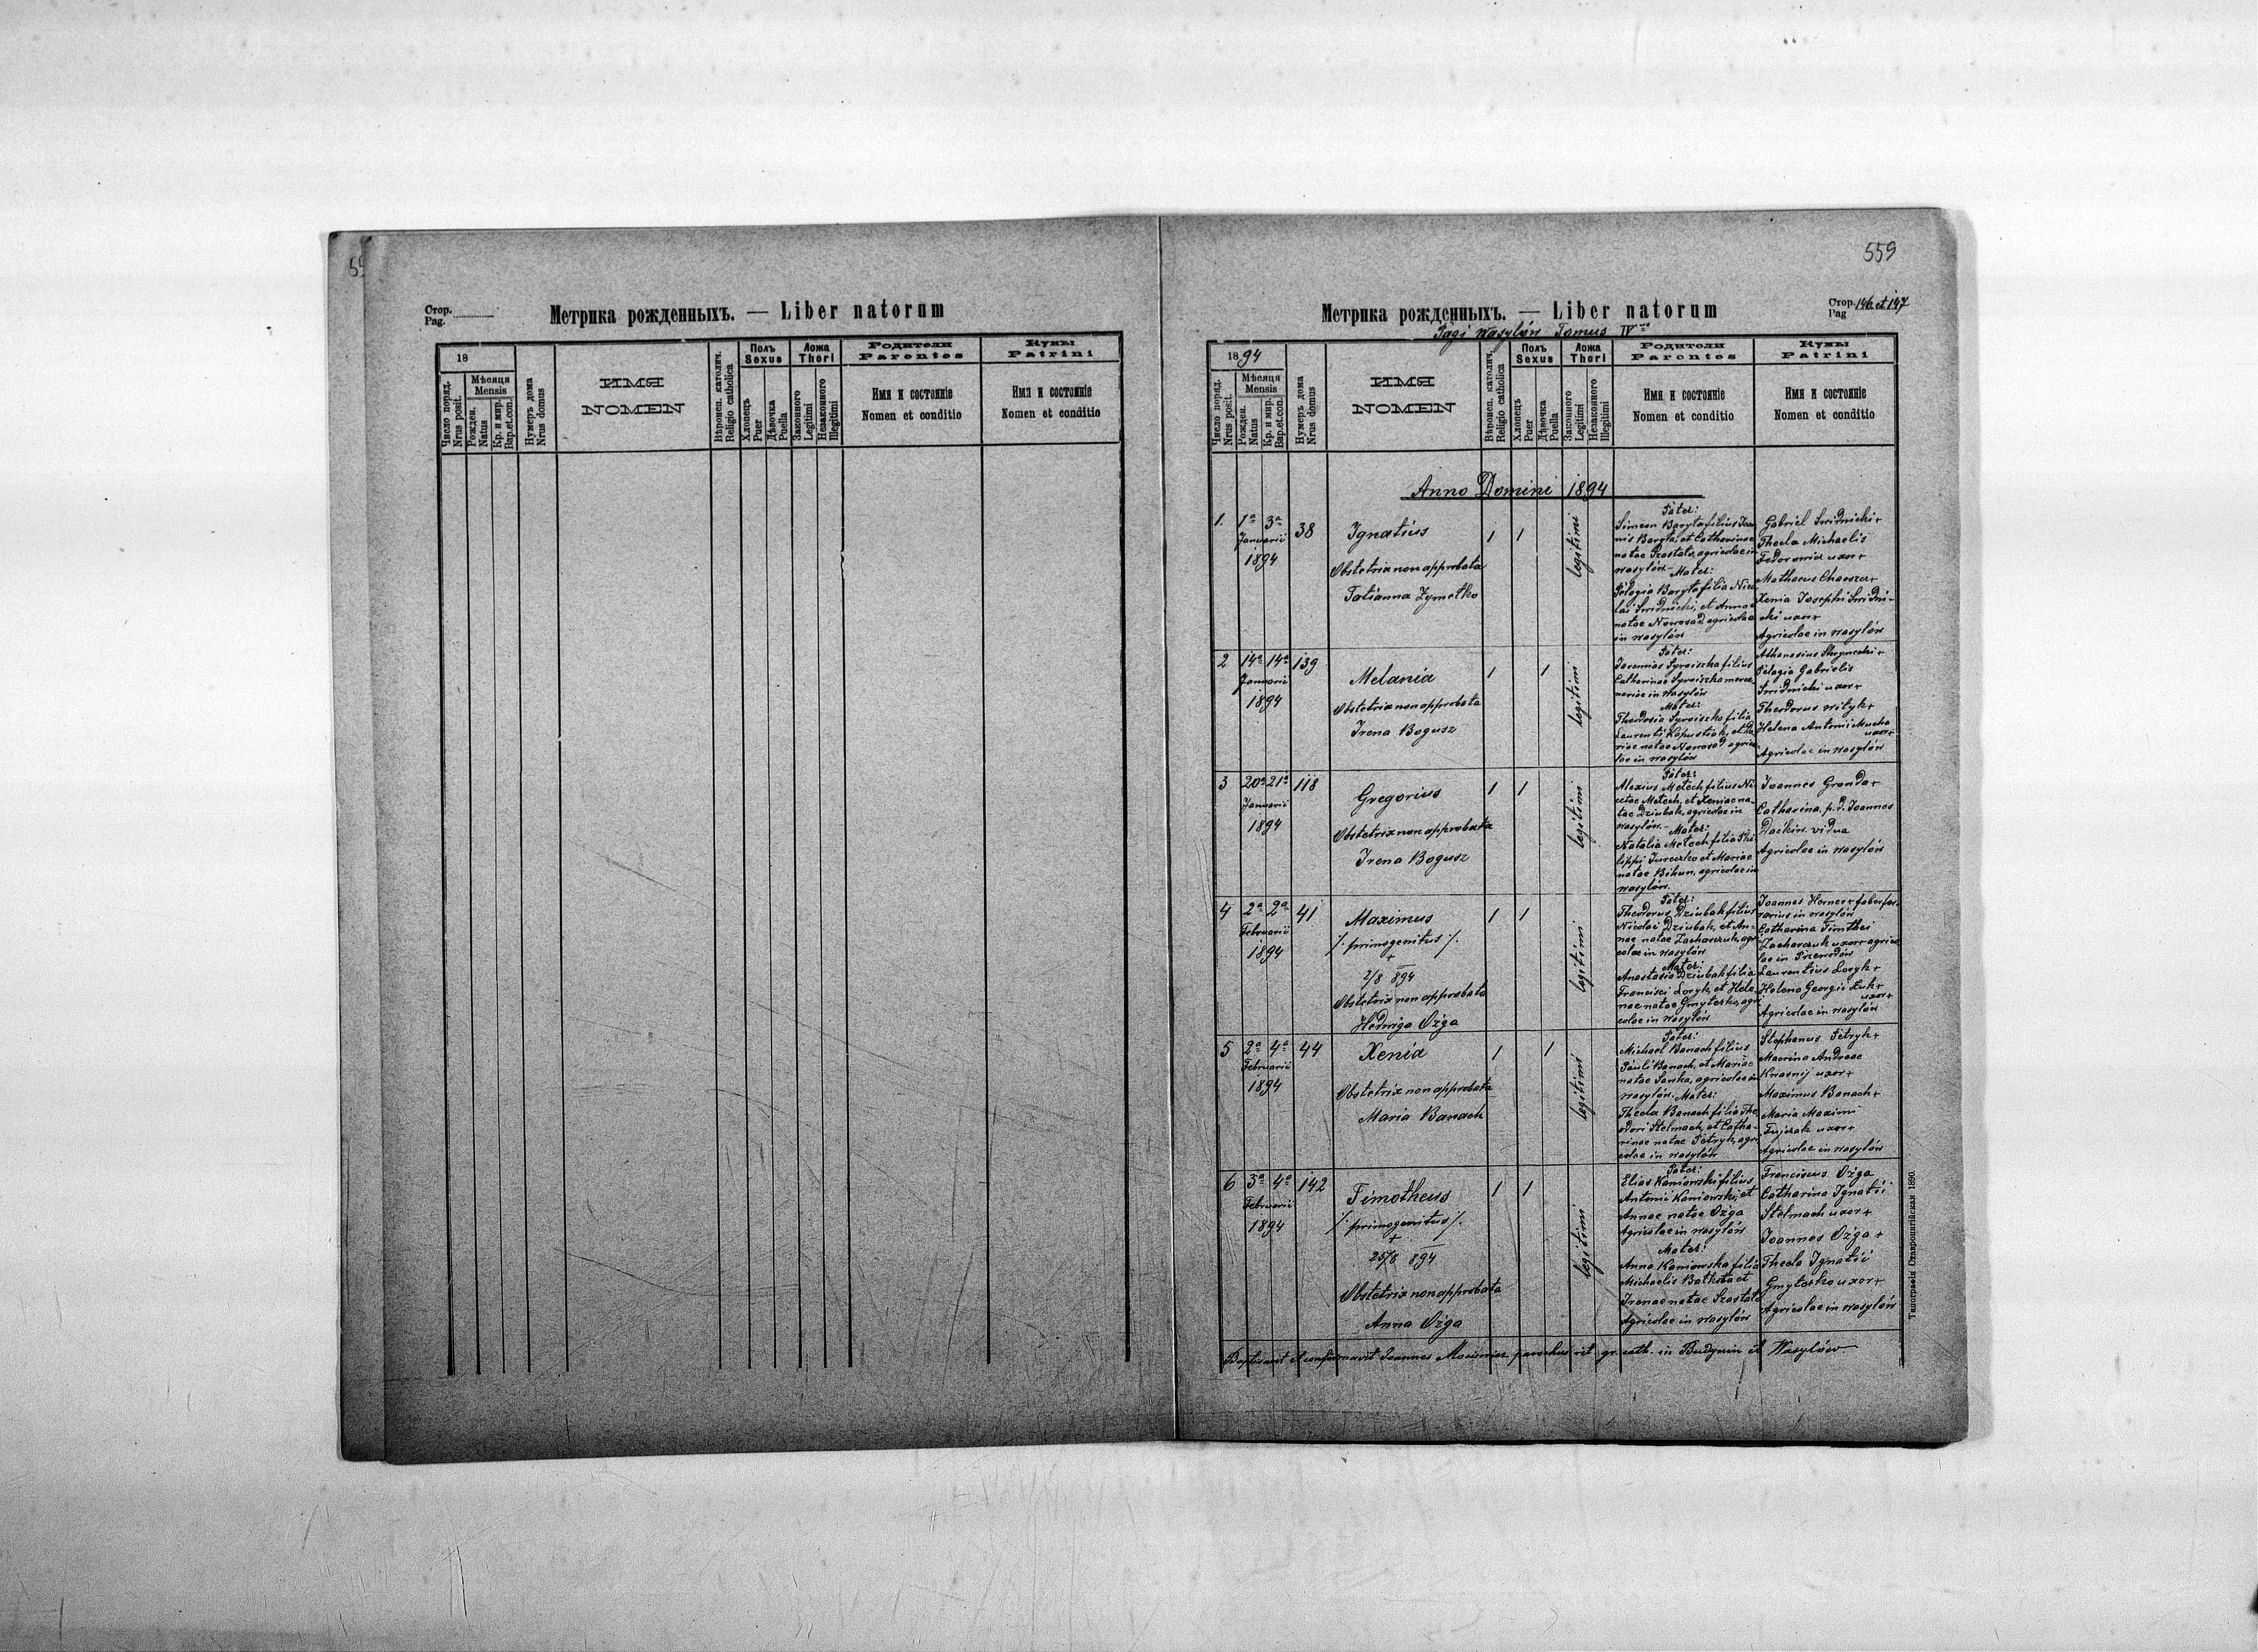 55
Стор.
Pag.
Метрика рожденныхъ. — Liber natorum
18
Число поряд.
Nrus posit.
Мѣсяца
Mensis
Рожден.
Natus
Кр. и мир.
Bap.et.con.
Нумеръ дома
Nrus domus
ИМЯ
NOMEN
Вѣроисп. католич.
Religio catholica
Полъ
Sexus
Хлопецъ
Puer
Дѣвочка
Puella
Ложа
Thori
Законного
Legitimi
Незаконного
Illegitimi
Родители
Parentes
Имя и состояніе
Nomen et conditio
Кумы
Patrini
Имя и состояніе
Nomen et conditio
559
Метрика рожденныхъ. — Liber natorum
Стор.
Pag
146 et 147
Pagi Wasylów Tomus IV
1894
Число поряд.
Nrus posit.
Мѣсяца
Mensis
Рожден.
Natus
Кр. и мир.
Bap.et.con.
Нумеръ дома
Nrus domus
ИМЯ
NOMEN
Вѣроисп. католич.
Religio catholica
Полъ
Sexus
Хлопецъ
Puer
Дѣвочка
Puella
Ложа
Thori
Законного
Legitimi
Незаконного
Illegitimi
Родители
Parentes
Имя и состояніе
Nomen et conditio
Кумы
Patrini
Имя и состояніе
Nomen et conditio
Anno Domini 1894
1. 1a 3a 38
Januarii
1894
Ignatius
Obstetrix non approbata
Tatianna Zymetko
1 1
legitimi
Pater:
Simeon Baryta filius Joan
nis Baryta, et Catharinae
natae Szostak, agricolae in
Wasylów. Mater:
Pelagia Baryta filia Nico
lai Swidnicki, et Annae
natae Nowosad agricolae
in Wasylów
Gabriel Swidnicki +
Thecla Michaelis
Fedorowicz uxor +
Mathaeus +
Xenia Josephi Swidni-
cki uxor +
Agricolae in Wasylów
2 14a 14a 139
Januarii
1894
Melania
Obstetrix non approbata
Irena Bogusz
1 1
legitimi
Pater:
filius
Catharinae
in Wasylów
Mater:
Theodosia filia
Laurentii Kapustiak, et
natae Nowosad
in Wasylów
Athanasius +
Pelagia Gabrielis
Swidnicki uxor +
Theodorus Wityk +
Helena Antonii Mucha
uxor +
Agricolae in Wasylów
3 20a 21a 118
Januarii
1894
Gregorius
Obstetrix non approbata
Irena Bogusz
1 1
legitimi
Pater:
Alexius Metech filius Ni
cetae Metech, et Xeniae na-
tae Dziubak, agricolae in
Wasylów. Mater:
Natalia Metech filia Phi
lippi Jureczko et Mariae
natae Bihun, agricolae in
Wasylów.
Joannes Gronda +
Catharina p. d. Joannes
vidua
Agricolae in Wasylów
4 2a 2a 41
Februarii
1894
Maximus
/. primogenitus /.
+
2/8 894
Obstetrix non approbata
Hedwiga Ożga
1 1
legitimi
Pater:
Theodorus Dziubak filius
Nicolai Dziubak, et An-
nae natae Zacharczuk, agri
colae in Wasylów
Mater:
Anastasia Dziubak filia
Francisci Loryk, et Hele-
nae natae Gmyterko, agri
colae in Wasylów
Joannes Herner + faber fer-
rarius in Wasylów
Catharina Timthei
Zacharczuk uxor + agrico
lae in Przewodów
Laurentius Loryk +
Helena Georgii Luk +
uxor +
Agricolae in Wasylów
5 2a 4a 44
Februarii
1894
Xenia
Obstetrix non approbata
Maria Banach
1 1
legitimi
Pater:
Michael Banach filius
Pauli Banach, et Mariae
natae Sanka, agricolae in
Wasylów. Mater:
Thecla Banach filia The
odori Stelmach, et Catha-
rinae natae Petryk, agri
colae in Wasylów
Stephanus Petryk +
Macrina Andreae
Krasnij uxor +
Maximus Banach +
Maria Maximi
uxor +
Agricolae in Wasylów
6 3a 4a 142
Februarii
1894
Timotheus
/. primogenitus /.
+
25/8 894
Obstetrix non approbata
Anna Ożga
1 1
legitimi
Pater:
Elias Kaniowski filius
Antonii Kaniowski, et
Annae natae Ożga
Agricolae in Wasylów
Mater:
Anna Kaniowska filia
Michaelis et
Irenae natae Szostak
Agricolae in Wasylów
Franciscus Ożga
Catharina Ignatii
Stelmach uxor +
Joannes Ożga +
Thecla Ignatii
Gmyterko uxor +
Agricolae in Wasylów
Baptisavit et confirmavit Joannes parochus rit. gr. cath. in Budynin et Wasylów
Типографія Ставропигійская 1890.